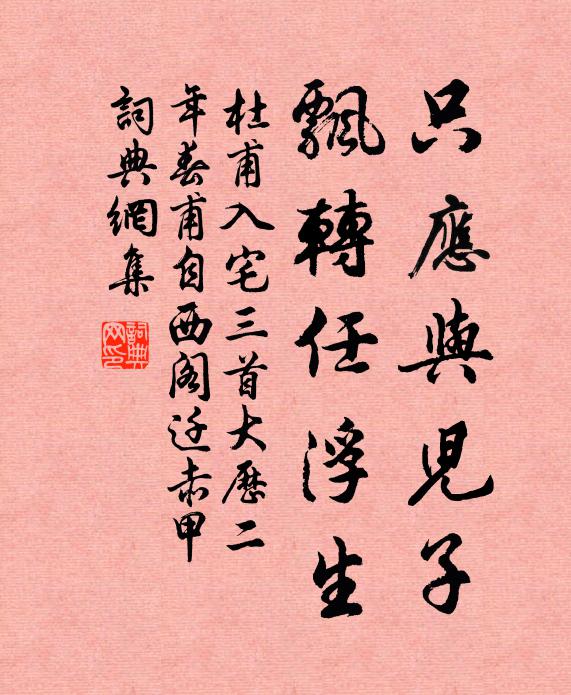 只應與兒子
飄轉任浮生
杜甫入宅三首大歷二
年春甫自西阁迁赤甲
詞典網集
詞典网印